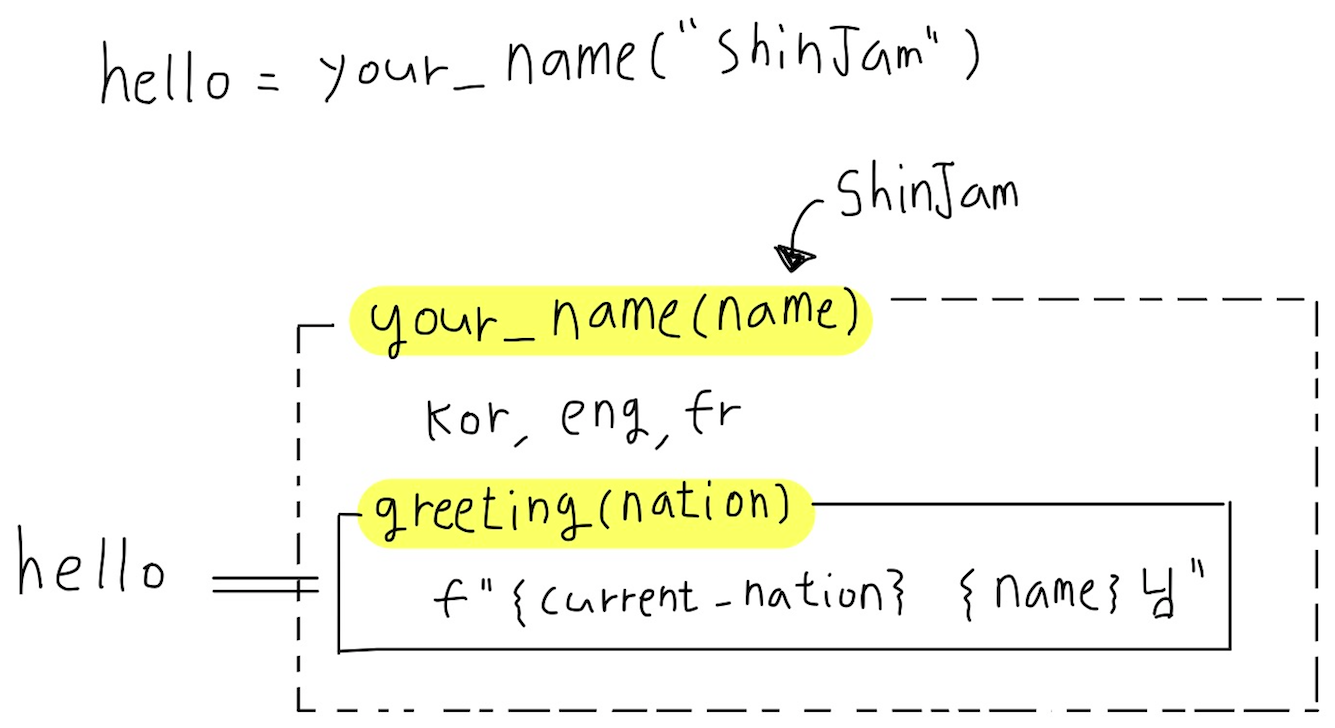 hello = your_name("ShinJam")
ShinJam
your_name(name)
kor, eng, fr
greeting(nation)
hello
f"{current_nation} {name}님"